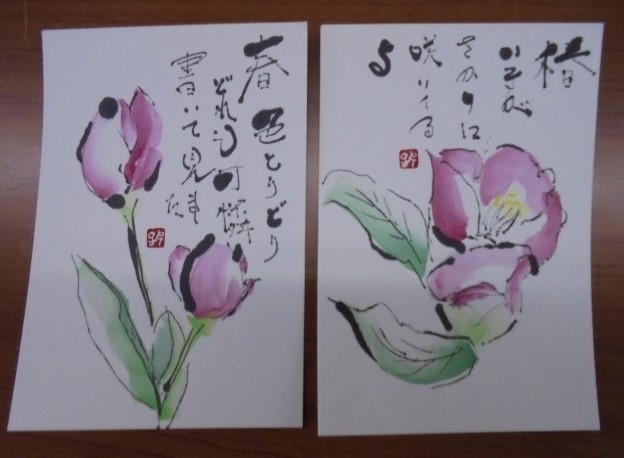 春 色とりどり
どれも可憐
書いて見ました
椿
いまが
さかりに
咲いてる
よ